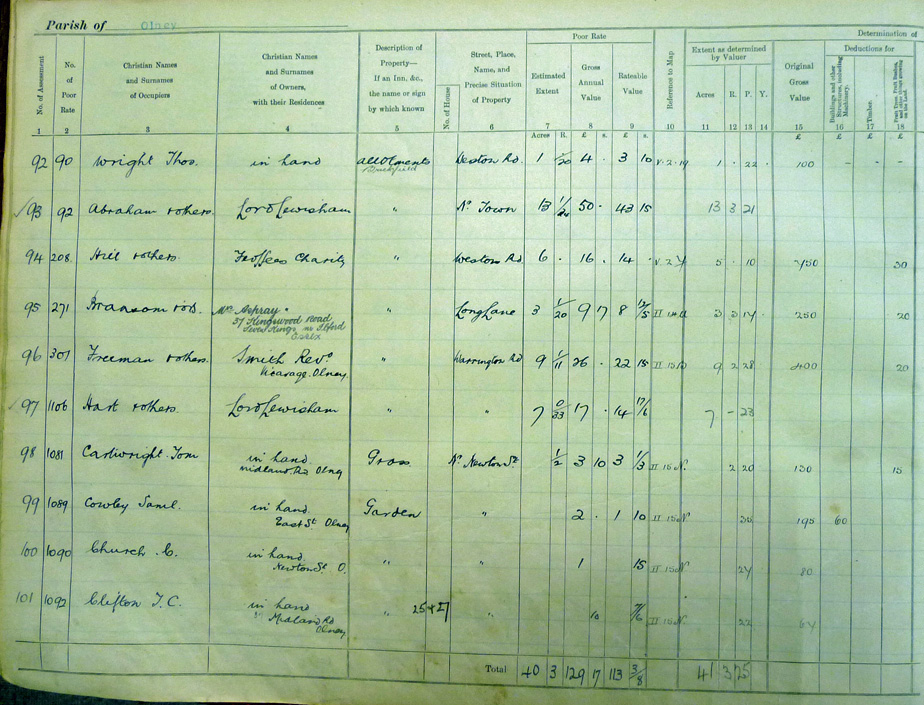 Parish of Olney
Poor Rate
Determination of
No. of Assessment
No. of Poor Rate
Christian Names and Surnames of Occupiers
Christian Names and Surnames of Owners, with their Residences
Description of Property— If an Inn, &c., the name or sign by which known
No. of House
Street, Place, Name, and Precise Situation of Property
Estimated Extent
Gross Annual Value
Rateable Value
Reference to Map
Extent as determined by Valuer
Acres R. P. Y.
Original Gross Value
Deductions for
Buildings and other Structures, including Machinery.
Timber.
1 2 3 4 5 6 7 8 9 10 11 12 13 14 15 16 17 18
Acres R. £ s. £ s. £ £ £ £
92 90 Wright Thos. in hand allotments Weston Rd. 1 1/20 4 . 3 10 1 . 22 100 - - -
93 92 Abraham & others. Lord Lewisham " Nr Town 13 50 . 43 15 13 3 21
94 208. Hill & others. Feoffees Charity " Weston Rd 6 . 16 . 14 . 5 . 10 30
95 271 " Long Lane 3 1/20 9 17 8 3 3 14 250 20
37 Kingswood Road
Seven Kings nr Ilford
Essex
96 307 Freeman & others. Smith Revd " Warrington Rd 9 1/11 26 . 22 15 9 2 28 400 20
Vicarage. Olney
97 1106 Hart & others. Lord Lewisham " " 7 0/33 17 . 14 17/6 7 - 23
98 1081 Cartwright Tom in hand Grass Nr Newton St 1/2 3 10 3 1/3 2 20 130 15
Midland Rd Olney
99 1089 Cowley Saml. in hand Garden " 2 . 1 10 195 60
East St Olney
100 1090 Church C. in hand " " 1 15 24 80
Newton St O.
101 1092 Clifton T. C. in hand " 25 & 27 " 10 7/6 22 64
Midland Rd
Olney
Total 40 3 129 17 113 3/8 41 3 25